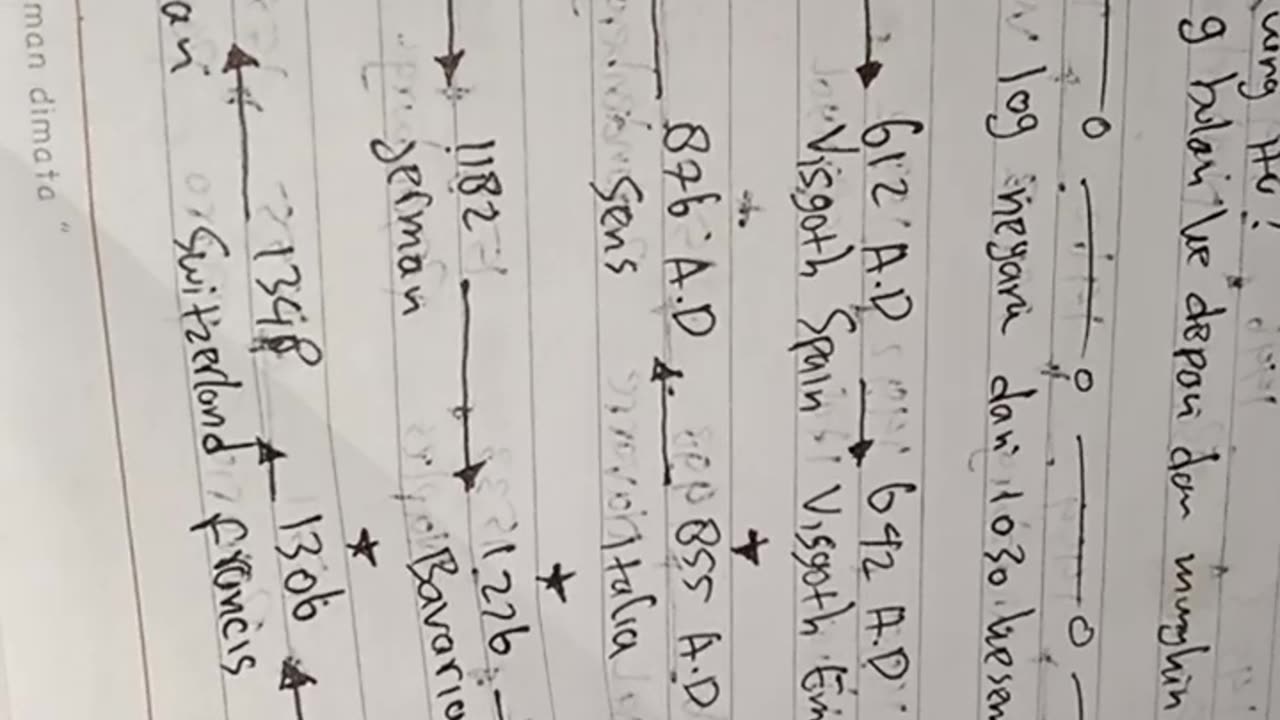 g bulan ke depan dan mungkin
log negara dari 1030
612 A.D → 642 A.D
Visgoth Spain Visgoth
876 A.D ← 855 A.D
Sens Italia
→ 1182 → 1226
Jerman Bavaria
← 1348 ← 1306 ←
an Switzerland Francis
man dimata "